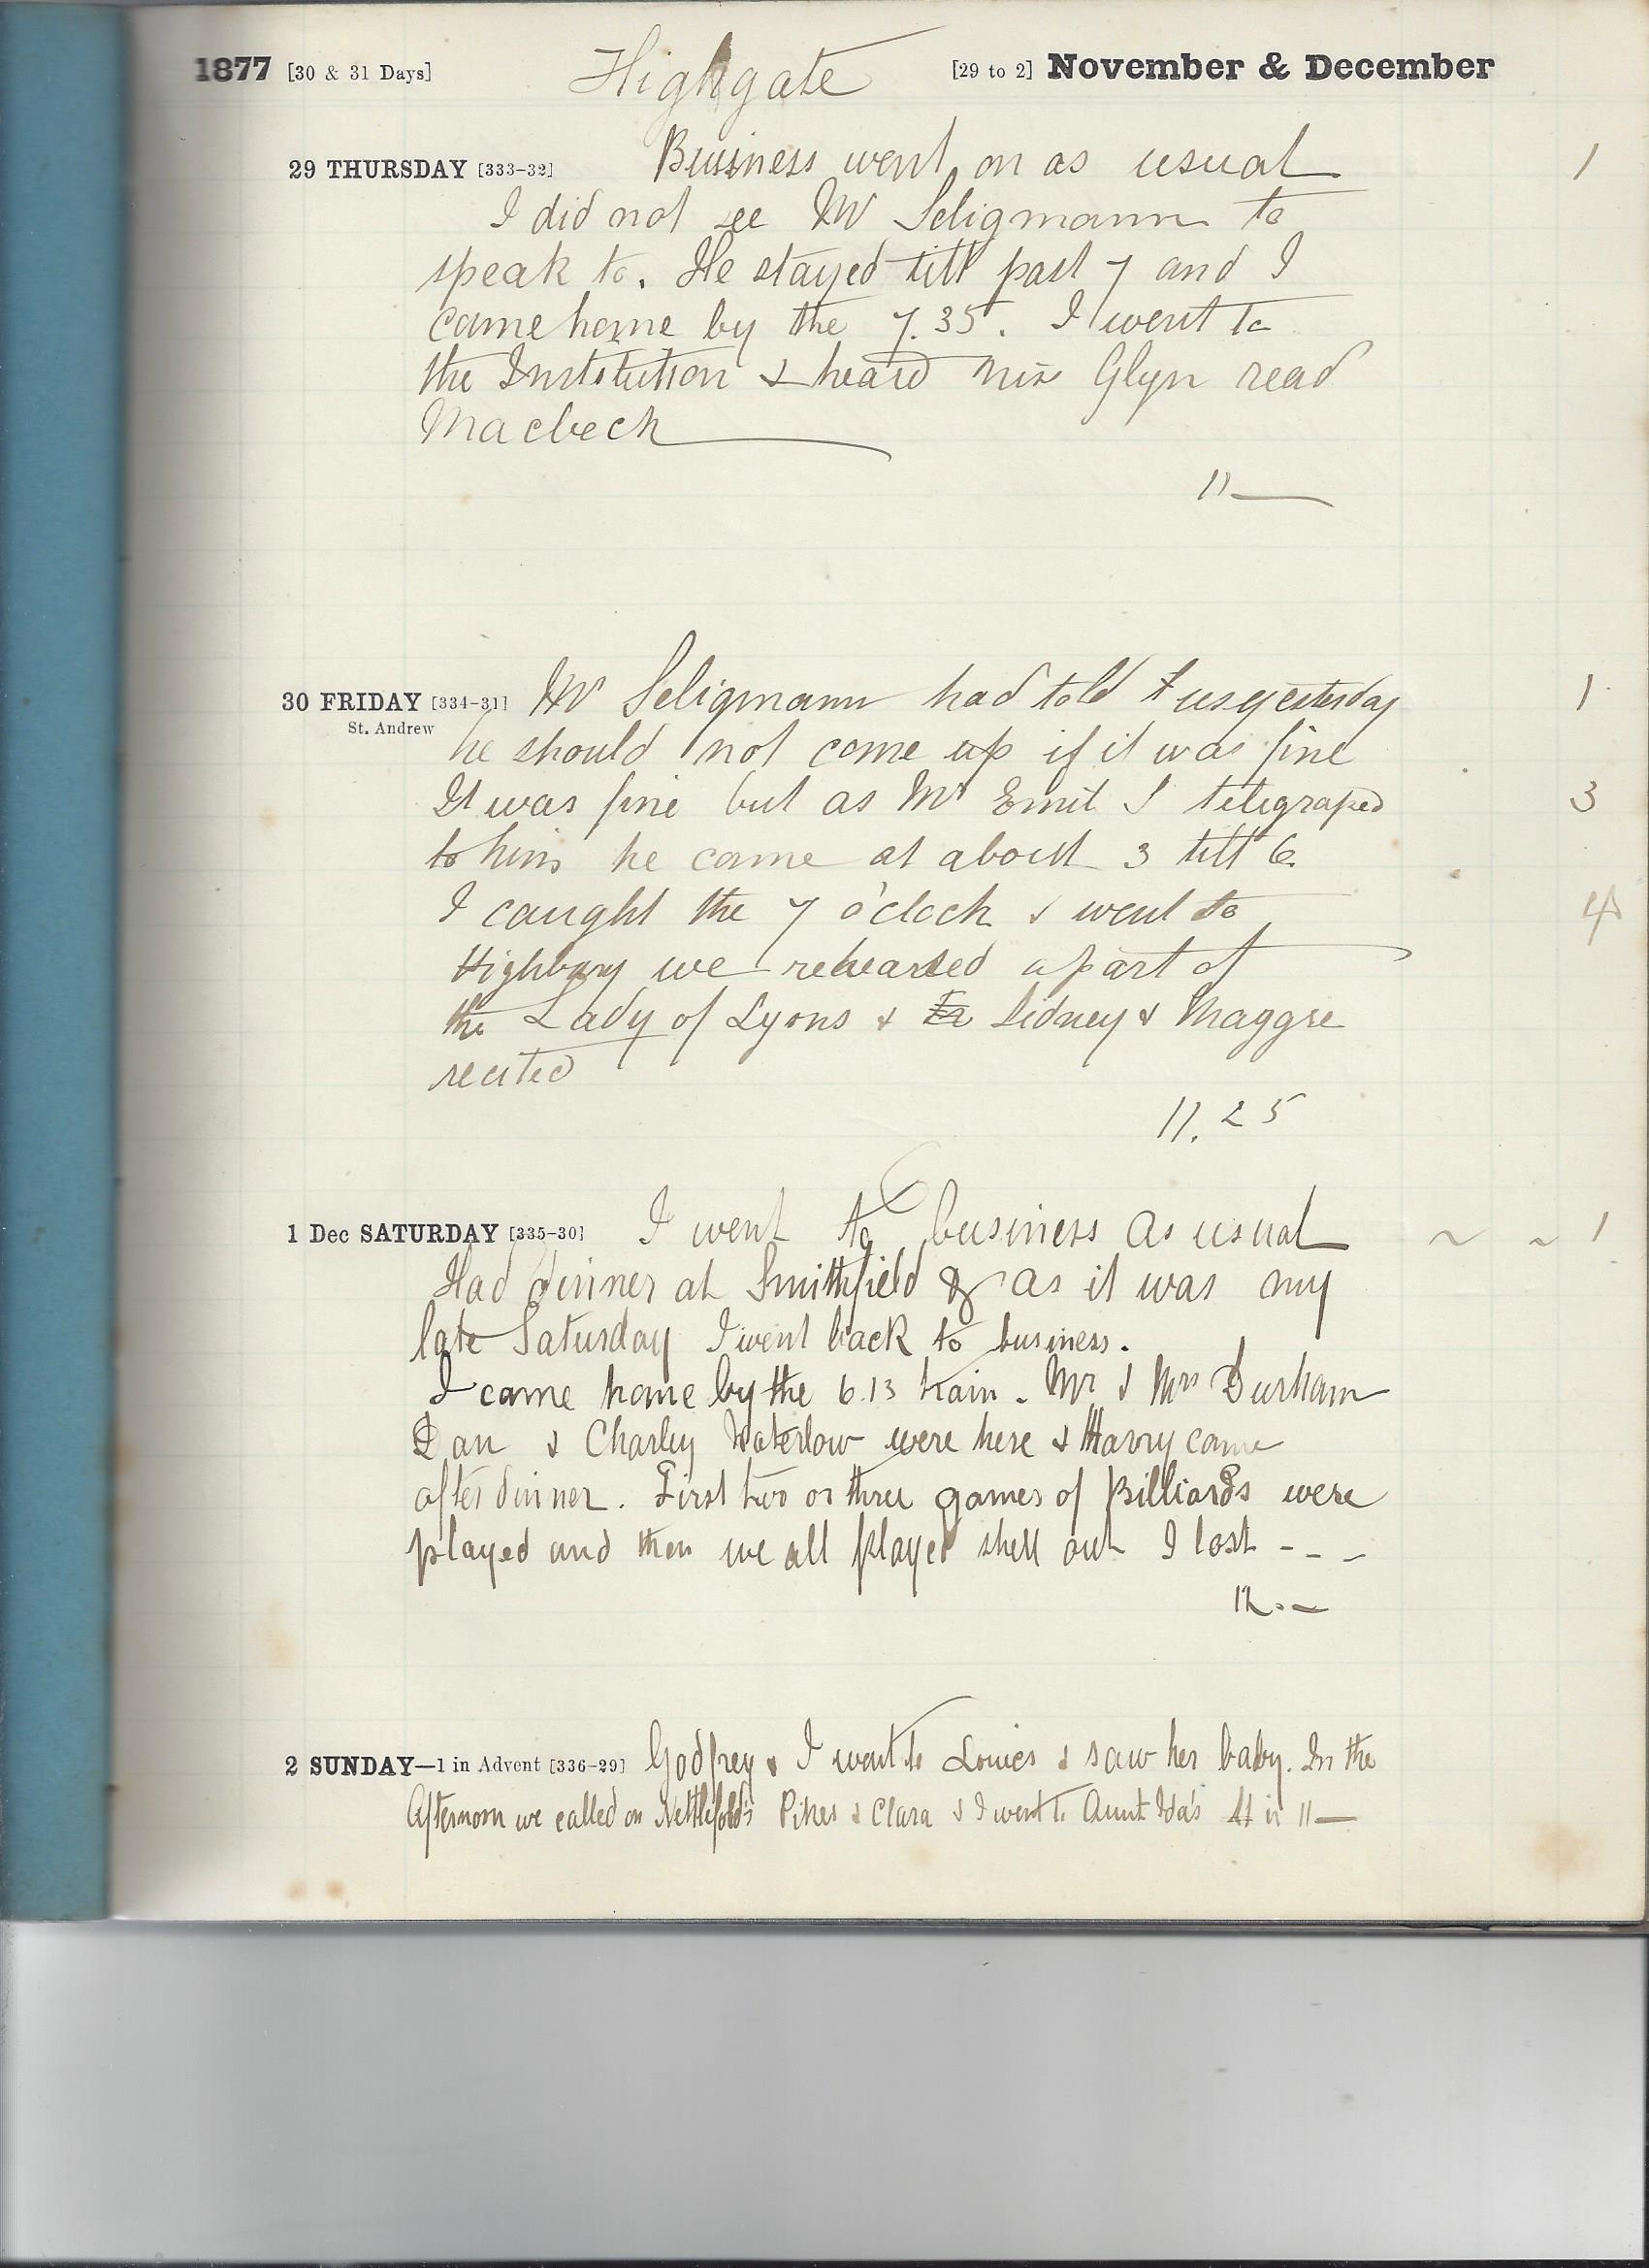 1877 [30 & 31 Days] Highgate [29 to 2] November & December
29 THURSDAY [333-32] Business went on as usual 1
I did not see Mr Seligmann to
speak to. He stayed till past 7 and I
came home by the 7.35. I went to
the Institution & heard Miss Glyn read
Macbeth
11—
30 FRIDAY [334-31] Mr Seligmann had told us yesterday 1
St. Andrew
he should not come up if it was fine
It was fine but as Mr Emil I telegraped 3
to him he came at about 3 till 6
I caught the 7 o'clock & went to 4
Highbury we rehearsed a part of
the Lady of Lyons & Sidney & Maggie
recited
11.25
1 Dec SATURDAY [335-30] I went to business as usual ~ ~ 1
Had dinner at Smithfield & as it was my
late Saturday I went back to business.
I came home by the 6.13 train. Mr & Mrs Durham
Dan & Charley Waterlow were here & Harry came
after dinner. First two or three games of Billiards were
played and then we all played shell out I lost - - -
12.—
2 SUNDAY—1 in Advent [336-29] Godfrey & I went to Louies & saw her baby. In the
Afternoon we called on Nettlefold's Pikes & Clara & I went to Aunt Ida's It is 11—